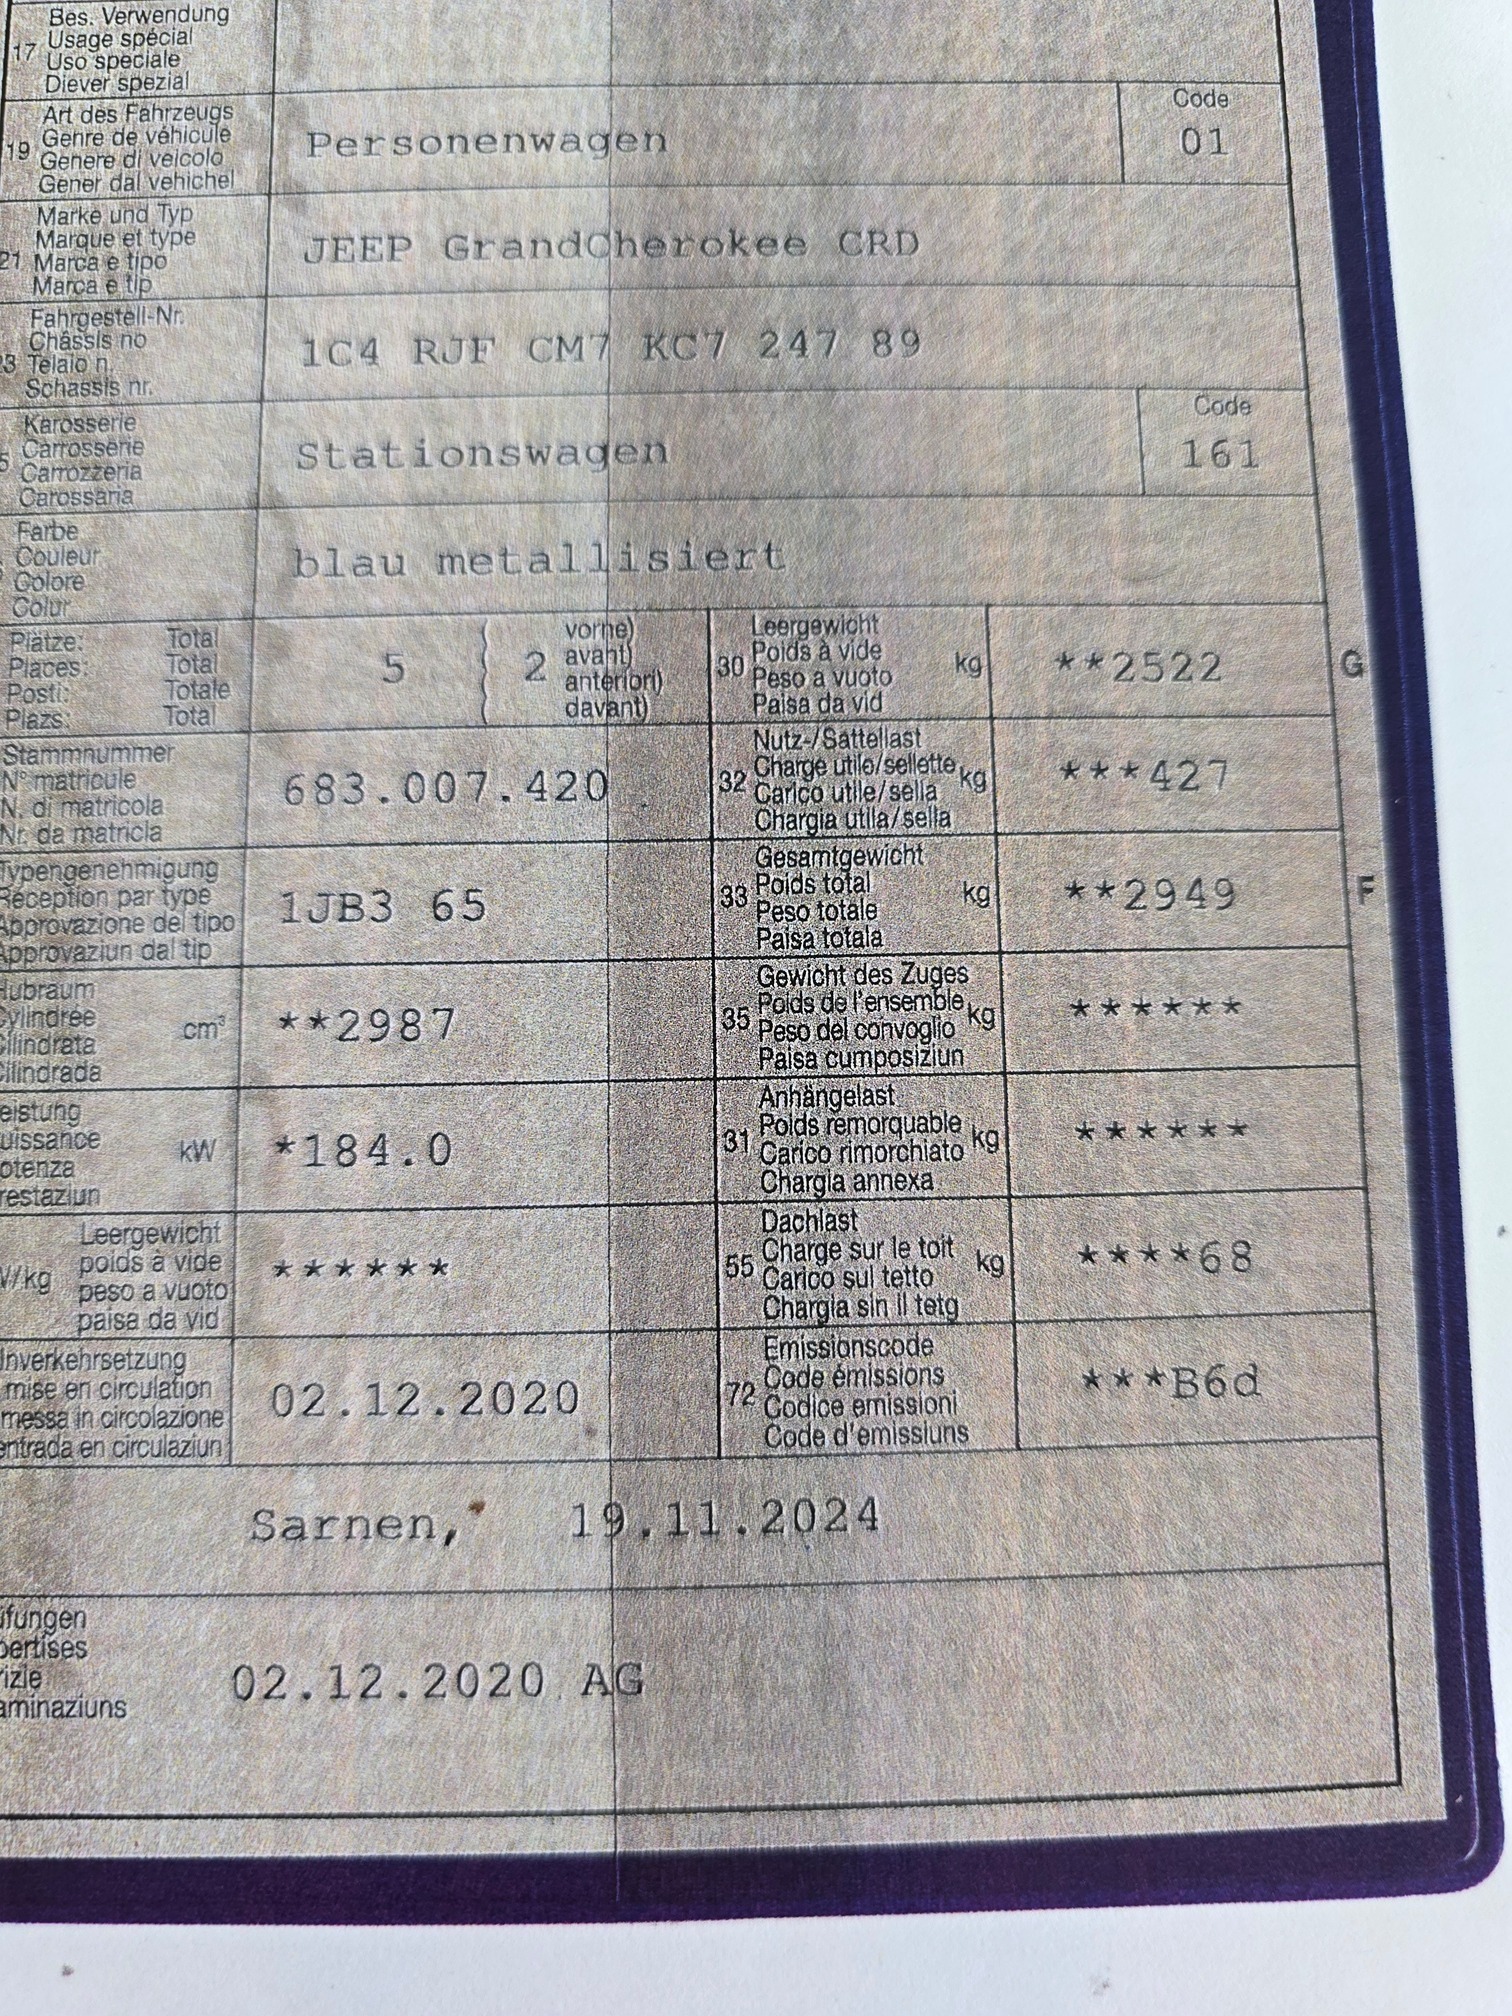 Bes. Verwendung
17 Usage spécial
Uso speciale
Diever spezial
Art des Fahrzeugs
19 Genre de véhicule
Genere di veicolo
Gener dal vehichel
Personenwagen
Code
01
Marke und Typ
Marque et type
21 Marca e tipo
Marca e tip
JEEP GrandCherokee CRD
Fahrgestell-Nr.
Châssis no
3 Telaio n.
Schassis nr.
1C4 RJF CM7 KC7 247 89
Karosserie
5 Carrosserie
Carrozzeria
Carossaria
Stationswagen
Code
161
Farbe
Couleur
Colore
Colur
blau metallisiert
Plätze: Total
Places: Total
Posti: Totale
Plazs: Total
5
2
vorne)
avant)
anteriori)
davant)
Leergewicht
30 Poids à vide kg
Peso a vuoto
Paisa da vid
**2522
G
Stammnummer
N° matricule
N. di matricola
Nr. da matricla
683.007.420
Nutz-/Sattellast
32 Charge utile/sellette kg
Carico utile/sella
Chargia utila/sella
***427
Typengenehmigung
Réception par type
Approvazione del tipo
Approvaziun dal tip
1JB3 65
Gesamtgewicht
33 Poids total kg
Peso totale
Paisa totala
**2949
F
Hubraum
Cylindrée cm³
Cilindrata
Cilindrada
**2987
Gewicht des Zuges
35 Poids de l'ensemble kg
Peso del convoglio
Paisa cumposiziun
******
eistung
uissance kW
otenza
restaziun
*184.0
Anhängelast
31 Poids remorquable kg
Carico rimorchiato
Chargia annexa
******
Leergewicht
/kg poids à vide
peso a vuoto
paisa da vid
******
Dachlast
55 Charge sur le toit kg
Carico sul tetto
Chargia sin il tetg
****68
Inverkehrsetzung
mise en circulation
messa in circolazione
entrada en circulaziun
02.12.2020
Emissionscode
72 Code émissions
Codice emissioni
Code d'emissiuns
***B6d
Sarnen, 19.11.2024
üfungen
pertises
rizie
aminaziuns
02.12.2020 AG